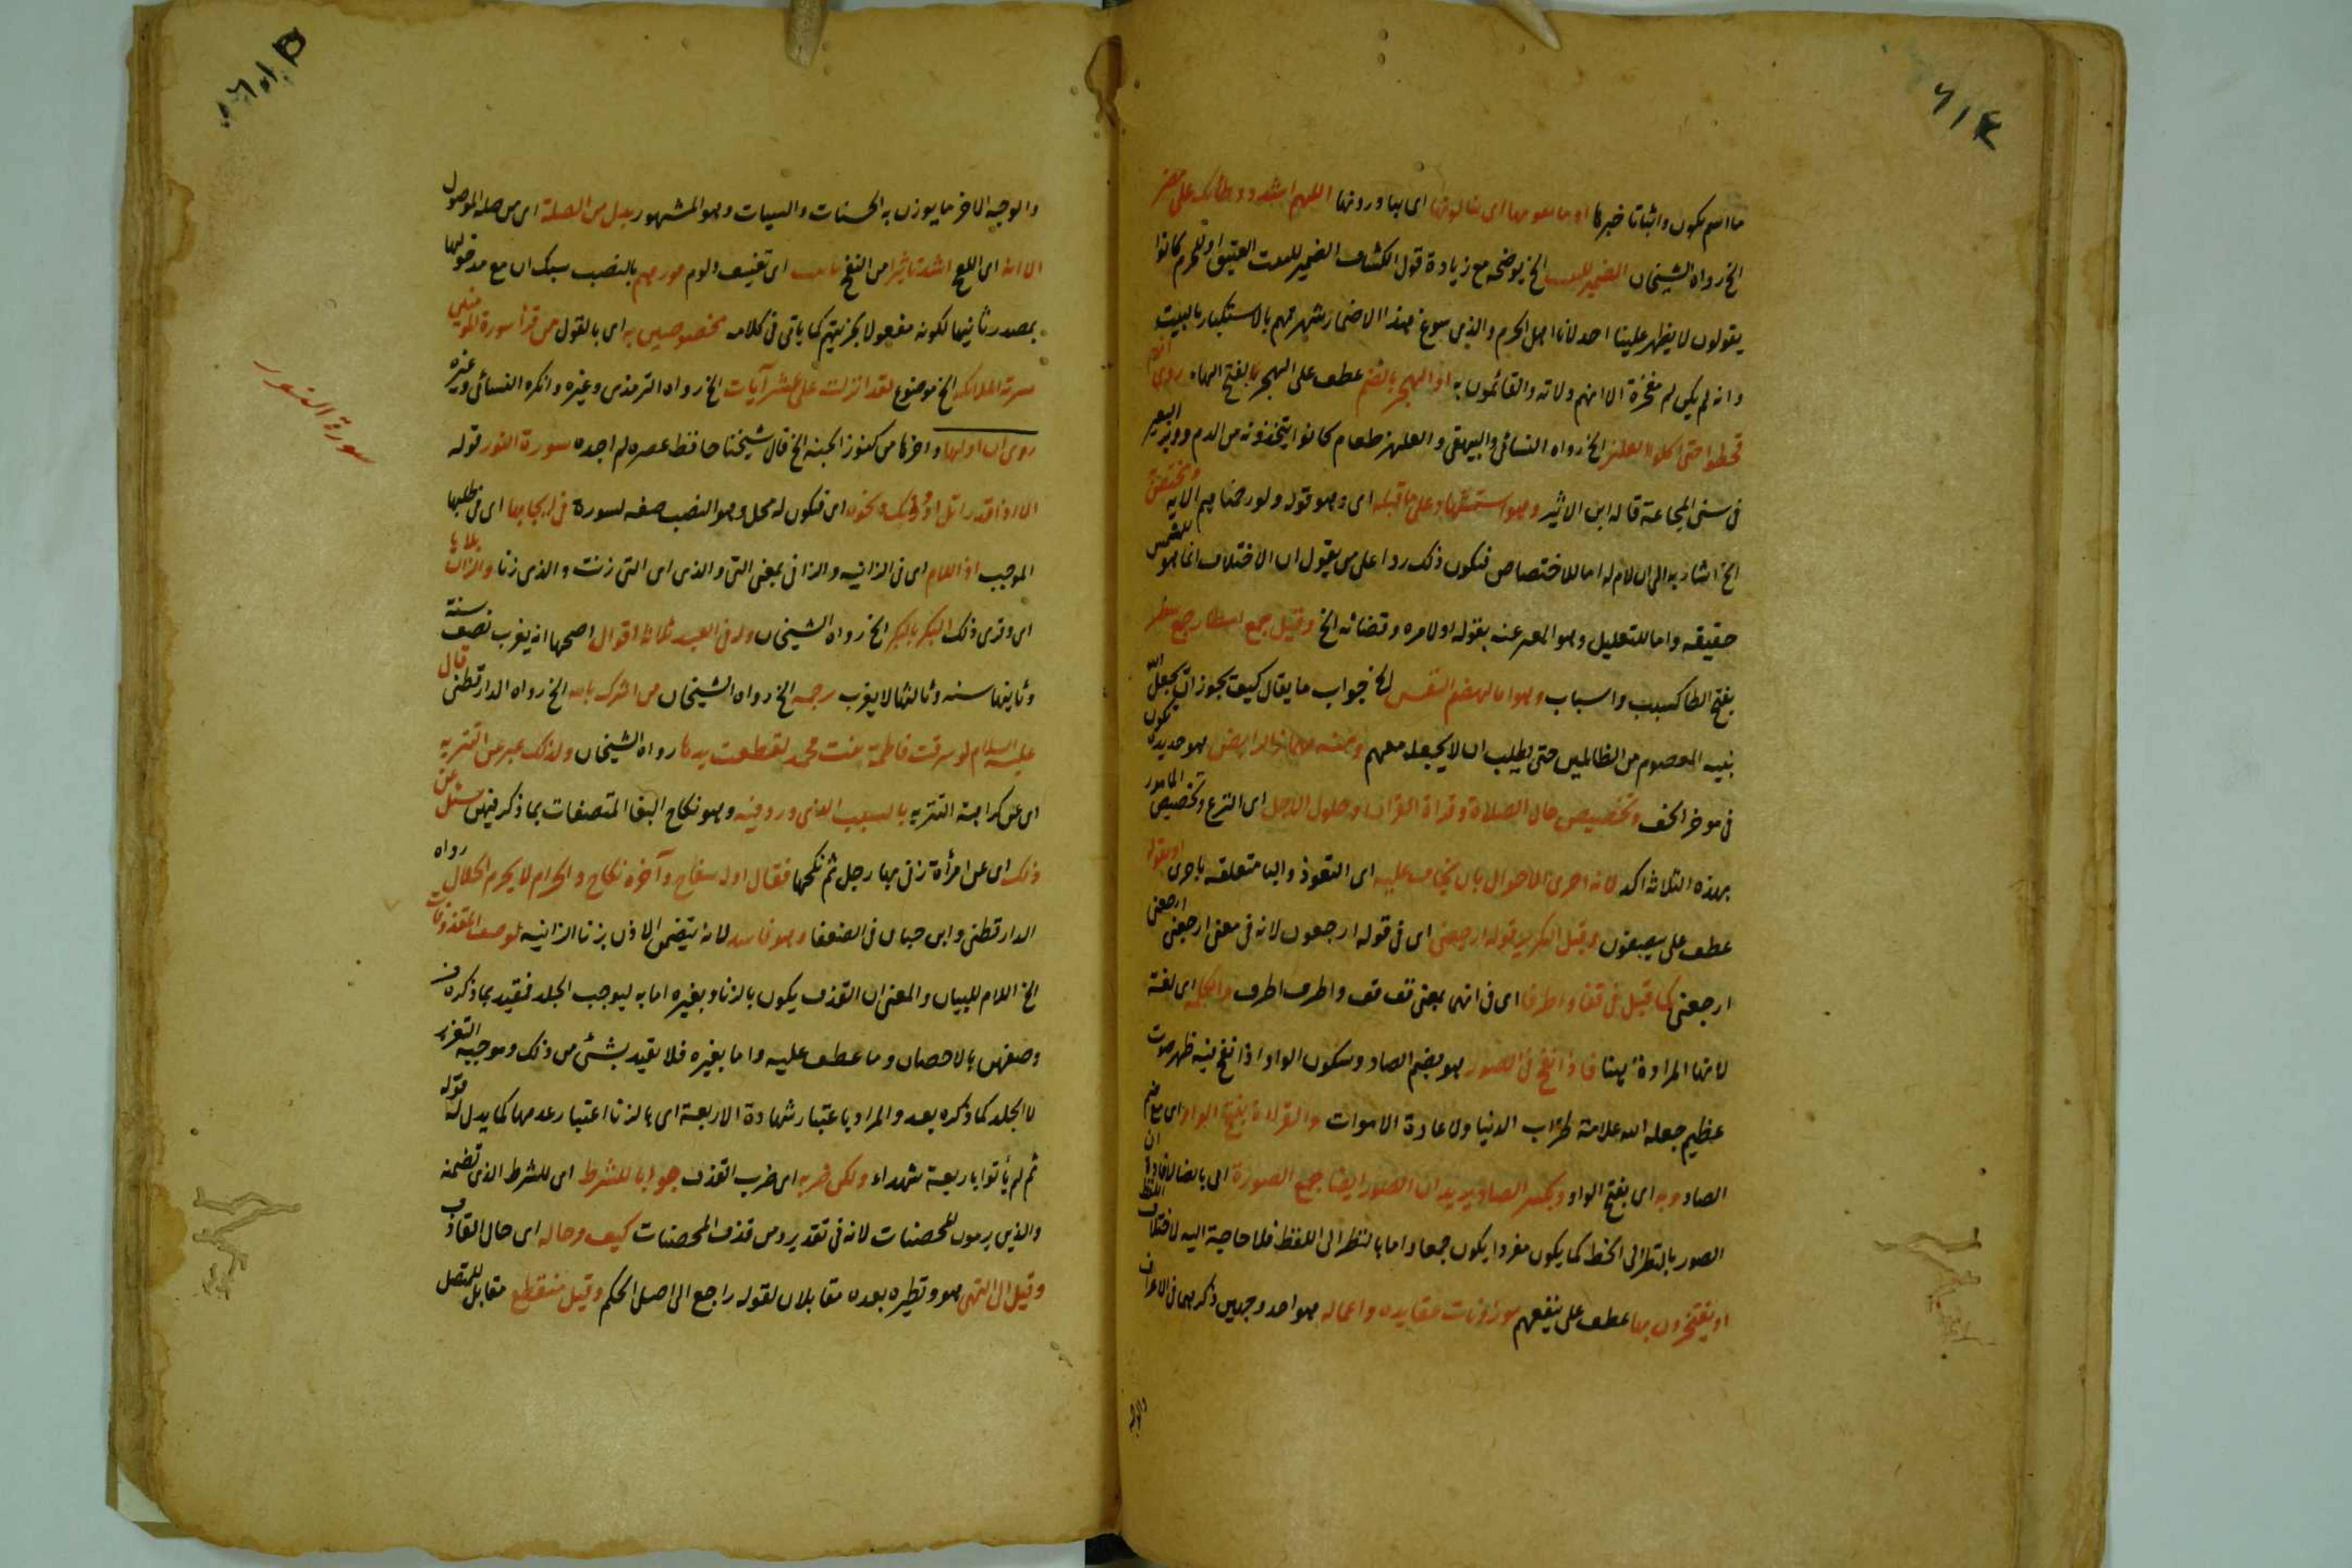 ٦١٤
ما اسم يكون واثباتا خبركا او ما اى ينالونها اى يناورونها اللهم اشدد وطأتك على مضر
الخ رواه الشيخان الضمير للبيت الخ يوضحه مع زيادة قول الكشاف الضمير للبيت العتيق او للحرم كانوا
يقولون لا يظهر علينا احد لانا اهل الحرم والذى سوغ هذا الاضمار شهرتهم بالاستكبار بالبيت
وانه لم يكن لهم مفخرة الا انهم ولاته والقائمون به او الهجر بالضم عطف على الهجر بالفتح الهاء روى انهم
قحطوا حتى اكلوا العلهز الخ رواه النسائى والبيهقى والعلهز طعام كانوا يتخذونه من الدم ووبر البعير
فى سنى المجاعة قاله ابن الاثير وهو استشهاد على ما قبله اى وهو قوله ولو رحمناهم الآية
الخ اشار به الى ان لام له اما للاختصاص فتكون ذلك ردا على من يقول ان الاختلاف انما هو للشمس
حقيقة واما للتعليل وهو المعبر عنه بقوله او لامره وقضائه الخ وقيل جمع اسطار جمع سطر
بفتح الطا كسبب واسباب وهو اما لهضم النفس الخ جواب ما يقال كيف يجوز ان يجعل الله
نبيه المعصوم من الظالمين حتى يطلب ان لا يجعله معهم ومنه مهماز الرايض هو حديدة تكون
فى موخر الخف وتخصيص حال الصلاة وقراة القران وحلول الاجل اى النزع وتخصيص المامور
بهذه الثلاثة اكد لانه احرى الاحوال بان يخاف عليه اى التعوذ والبا متعلقة باحرى او بقوله
عطف على يصفون وقيل التكرير قوله ارجعنى اى فى قوله ارجعون لانه فى معنى ارجعنى ارجعنى
ارجعنى كما قيل فى قفا واطرفا اى فى انهى بمعنى قف قف واطرف اطرف والكلمة اى لغة
لانها المرادة هنا فاذا نفخ فى الصور هو بضم الصاد وسكون الواو اذا نفخ فيه ظهر صوت
عظيم جعله الله علامة خراب الدنيا ولاعادة الاموات والقراءة بفتح الواو اى مع ضم
الصاد وبه اى بفتح الواو وبكسر الصاد يريد ان الصور ايضا جمع الصورة اى بالضا
الصور بالنظر الى الخط كما يكون مفردا يكون جمعا واما بالنظر الى اللفظ فلا حاجة اليه لاختلاف اللفظ
او يفتخرون بها عطف على ينفعهم موزونات عقايده واعماله هو احد وجهين ذكرهما فى الاعراف
والوجه
والوجه الاخر ما يوزن به الحسنات والسيات وهو المشهور بدل من الصلة اى من صلة الموصول
الا انه اى اللفح اشد تاثيرا من النفخ تانيب اى تعنيف ولوم فوزهم بالنصب سبك ان مع مدخولها
بمصدر ثانيهما لكونه مفعولا بجزيتهم كما ياتى فى كلامه مخصوصين به اى بالقول من قرأ سورة المومنين
بشرته الملائكة الخ موضوع لقد انزلت على عشر آيات الخ رواه الترمذى وغيره وانكره النسائى وغيره
روى ان اولها واخرها من كنوز الجنة الخ قال شيخنا حافظ عصره لم اجده سورة النور قوله
الا اذا قدر اتل او دونك ونحوه اى فتكون له محل وهو النصب صفة لسورة فى ايجابها اى فى طلبها
الموجب اذ اللام اى فى الزانية والزانى بمعنى التى والذى اى التى زنت والذى زنا والزان بلا يا
اى وقرى ذلك البكر بالبكر الخ رواه الشيخان وله فى العبد ثلاثة اقوال اصحها انه يغرب نصف سنة
وثانيها سنة وثالثها لا يغرب رجمه الخ رواه الشيخان من اشرك بالله الخ رواه الدارقطنى قال
عليه السلام لو سرقت فاطمة بنت محمد لقطعت يدها رواه الشيخان ولذلك عبر عن التنزيه
اى عن كراهة التنزيه بالسبب الذى ورد فيه وهو نكاح البغا المتصفات بما ذكر فيهن سئل عن
ذلك اى عن امرأة زنى بها رجل ثم نكحها فقال اوله سفاح وآخره نكاح والحرام لا يحرم الحلال رواه
الدارقطنى وابن حبان فى الضعفا وهو فاسد لانه يتضمن الاذن بزنا الزانية لوصف المقذوفات
الخ اللام للبيان والمعنى ان القذف يكون بالزنا وبغيره اما به ليوجب الجلد فقيد بما ذكره من
وصفهن بالاحصان وما عطف عليه واما بغيره فلا تقيد بشئ من ذلك وموجبه التعزير
لا الجلد كما ذكره بعد والمراد باعتبار شهادة الاربعة اى بالزنا اعتبار عدمها كما يدل له قوله
ثم لم يأتوا باربعة شهداء ولكن ضربه اى ضرب القذف جوابا للشرط اى للشرط الذى تضمنه
والذين يرمون المحصنات لانه فى تقدير ومن قذف المحصنات كيف وحاله اى حال القاذف
وقيل الى النهى هو ونظيره بعده مقابلان لقوله راجع الى اصل الحكم وقيل منقطع مقابل للمتصل
سورة النور